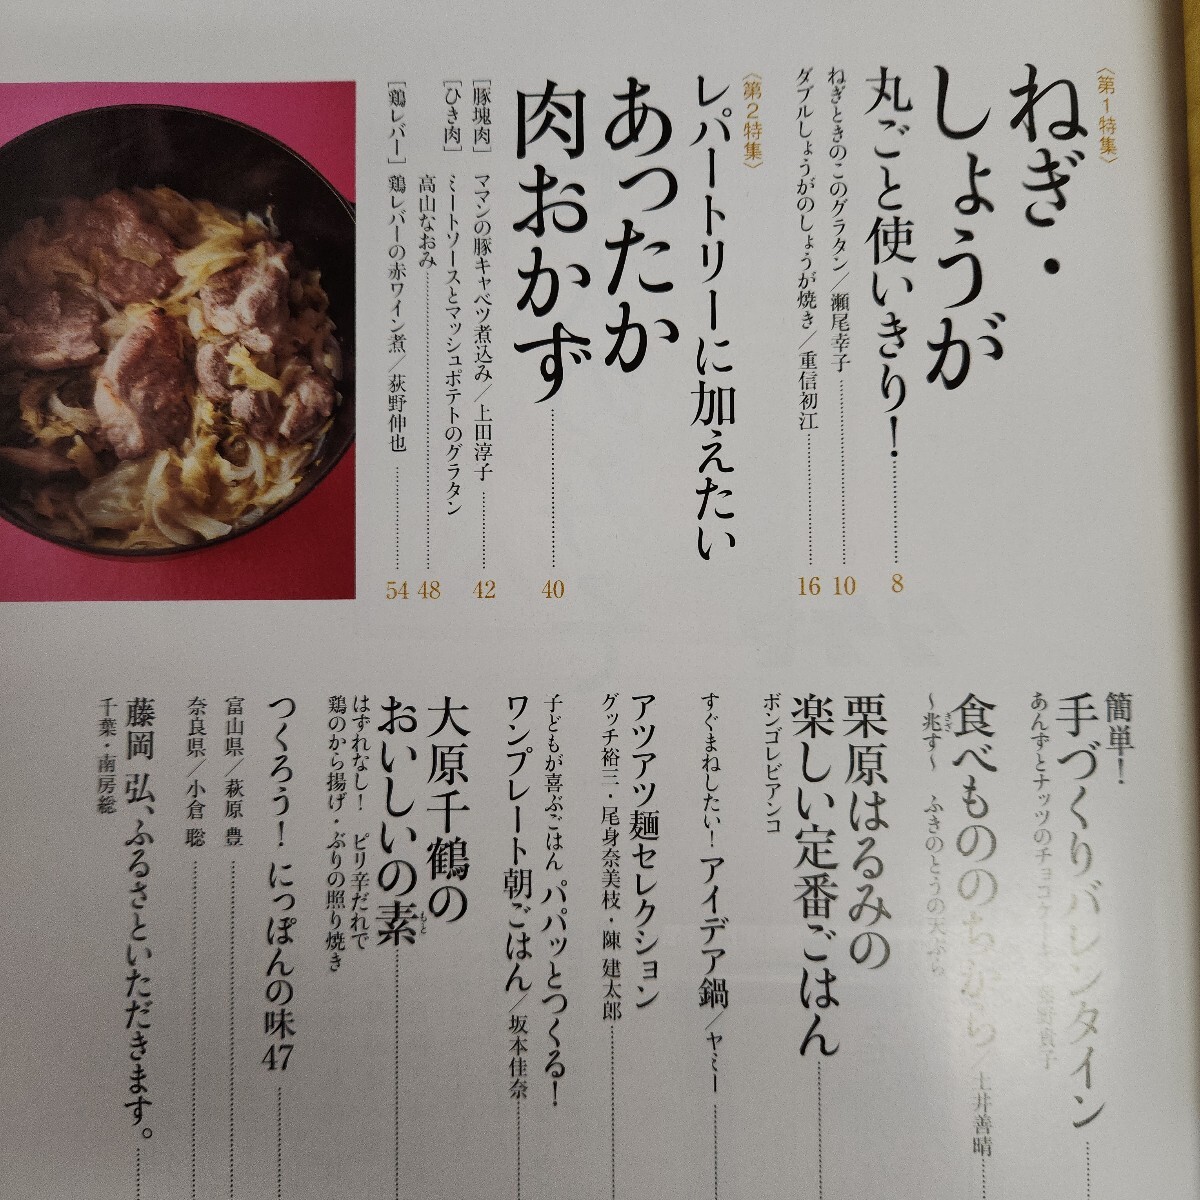 〈第1特集〉
ねぎ・
しょうが
丸ごと使いきり！ 8
ねぎときのこのグラタン／瀬尾幸子 10
ダブルしょうがのしょうが焼き／重信初江 16
〈第2特集〉
レパートリーに加えたい
あったか
肉おかず 40
［豚塊肉］ ママンの豚キャベツ煮込み／上田淳子 42
［ひき肉］ ミートソースとマッシュポテトのグラタン
高山なおみ 48
［鶏レバー］ 鶏レバーの赤ワイン煮／荻野伸也 54
簡単！
手づくりバレンタイン
あんずとナッツのチョコ
食べもののちから／土井善晴
～兆す～ ふきのとうの天ぷら
きざ
栗原はるみの
楽しい定番ごはん
ボンゴレビアンコ
すぐまねしたい！ アイデア鍋／ヤミー
アツアツ麺セレクション
グッチ裕三・尾身奈美枝・陳 建太郎
子どもが喜ぶごはん パパッとつくる！
ワンプレート朝ごはん／坂本佳奈
大原千鶴の
おいしいの素
もと
はずれなし！ ピリ辛だれで
鶏のから揚げ・ぶりの照り焼き
つくろう！ にっぽんの味47
富山県／萩原 豊
奈良県／小倉 聡
藤岡 弘、ふるさといただきます。
千葉・南房総